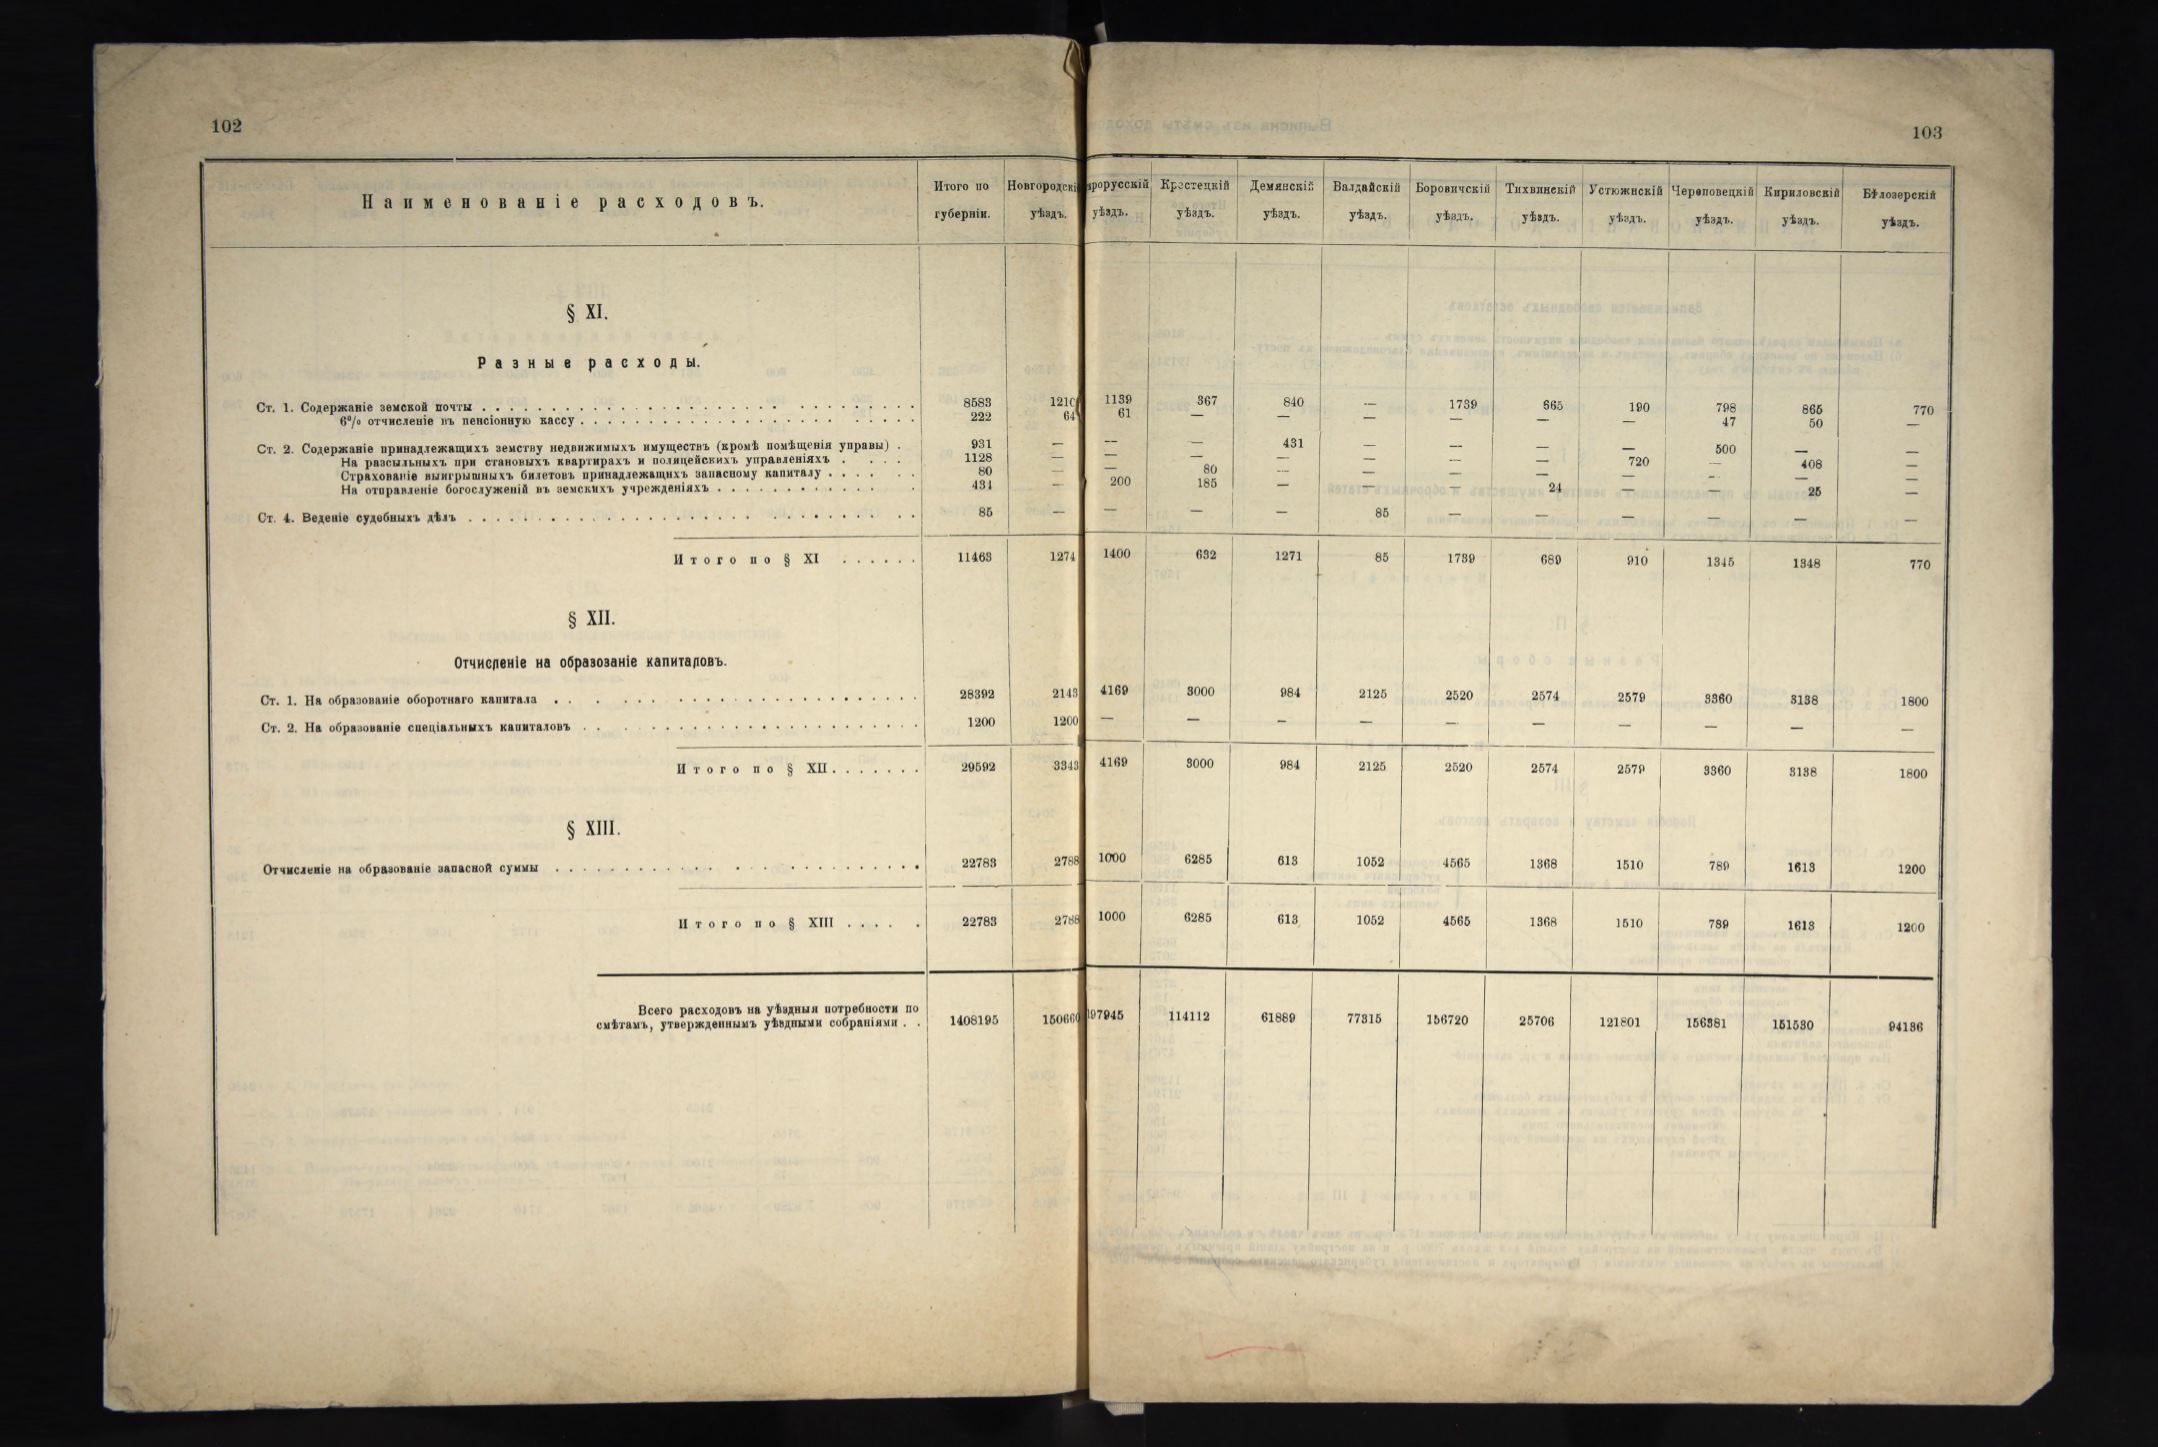 102
103
Наименованіе расходовъ.
Итого по губерніи.
Новгородскі уѣздъ.
арорусскій уѣздъ.
Крестецкій уѣздъ.
Демянскій уѣздъ.
Валдайскій уѣздъ.
Боровичскій уѣздъ.
Тихвинскій уѣздъ.
Устюжнскій уѣздъ.
Череповецкій уѣздъ.
Кириловскій уѣздъ.
Бѣлозерскій уѣздъ.
§ XI.
Разные расходы.
Ст. 1. Содержаніе земской почты 8583 1210 1139 367 840 — 1739 665 190 798 865 770
6% отчисленіе въ пенсіонную кассу 222 64 61 — — — — — — 47 50 —
Ст. 2. Содержаніе принадлежащихъ земству недвижимыхъ имуществъ (кромѣ помѣщенія управы) 931 — — — 431 — — — — 500 — —
На разсыльныхъ при становыхъ квартирахъ и полицейскихъ управленіяхъ 1128 — — — — — — — 720 — 408 —
Страхованіе выигрышныхъ билетовъ принадлежащихъ запасному капиталу 80 — — 80 — — — — — — — —
На отправленіе богослуженій въ земскихъ учрежденіяхъ 434 — 200 185 — — — 24 — — 25 —
Ст. 4. Веденіе судебныхъ дѣлъ 85 — — — — 85 — — — — — —
Итого по § XI 11463 1274 1400 632 1271 85 1739 689 910 1345 1348 770
§ XII.
Отчисленіе на образованіе капиталовъ.
Ст. 1. На образованіе оборотнаго капитала 28392 2143 4169 3000 984 2125 2520 2574 2579 3360 3138 1800
Ст. 2. На образованіе спеціальныхъ капиталовъ 1200 1200 — — — — — — — — — —
Итого по § XII 29592 3343 4169 3000 984 2125 2520 2574 2579 3360 3138 1800
§ XIII.
Отчисленіе на образованіе запасной суммы 22783 2788 1000 6285 613 1052 4565 1368 1510 789 1613 1200
Итого по § XIII 22783 2788 1000 6285 613 1052 4565 1368 1510 789 1613 1200
Всего расходовъ на уѣздныя потребности по
смѣтамъ, утвержденнымъ уѣздными собраніями 1408195 150660 197945 114112 61889 77315 156720 25706 121801 156381 151530 94136